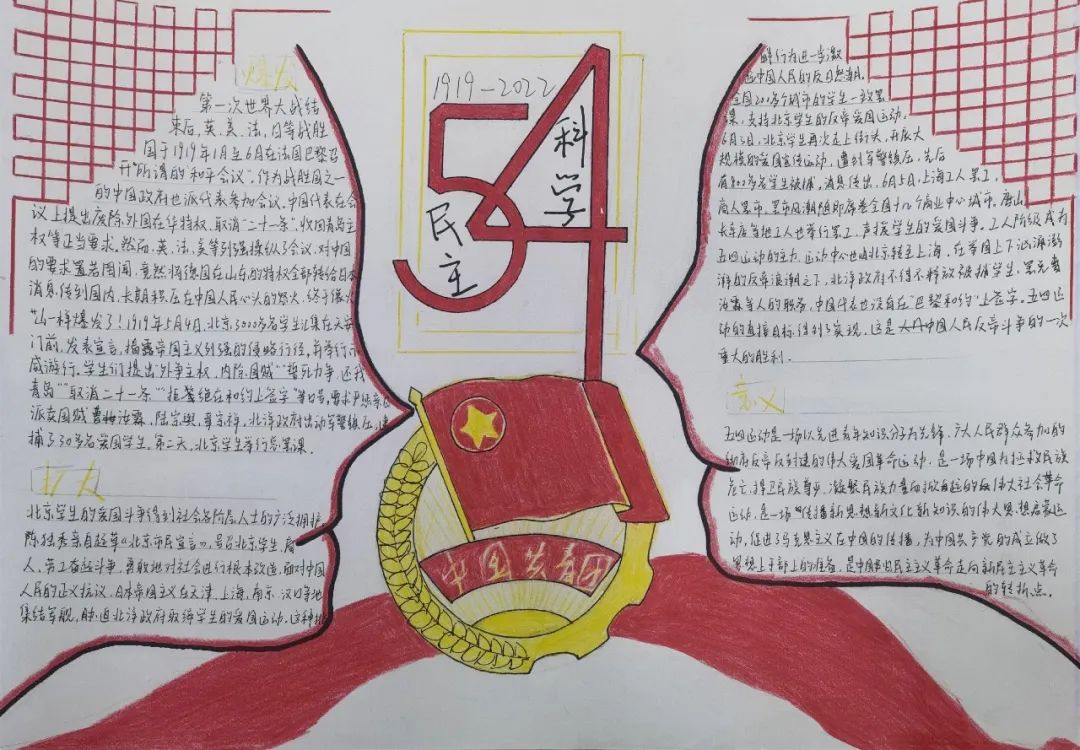 爆发
第一次世界大战结
束后,英、美、法、日等战胜
国于1919年1月至6月在法国巴黎召
开"所谓的"和平会议",作为战胜国之一
的中国政府也派代表参加会议,中国代表在会
议上提出废除外国在华特权,取消"二十一条",收回青岛主
权等正当要求。然而,英、法、美等列强操纵了会议,对中国
的要求置若罔闻,竟然将德国在山东的特权全部转给日本
消息传到国内,长期积压在中国人民心头的怒火,终于像火
山一样爆发了!1919年5月4日,北京3000多名学生汇集在天安
门前,发表宣言,揭露帝国主义列强的侵略行径,并举行示
威游行。学生们提出"外争主权,内除国贼""誓死力争,还我
青岛""取消二十一条""拒签绝在和约上签字"等口号,要求严惩亲日
派卖国贼曹汝霖,陆宗舆,章宗祥,北洋政府出动军警镇压,逮
捕了30多名爱国学生,第二天,北京学生举行总罢课。
扩大
北京学生的爱国斗争得到社会各阶层人士的广泛拥护
陈独秀亲自起草《北京市民宣言》,号召北京学生,商
人、劳工奋起斗争,勇敢地对社会进行根本改造,面对中国
人民的正义抗议,日本帝国主义在天津、上海、南京、汉口等地
集结军舰,胁迫北洋政府取缔学生的爱国运动,这种挑
1919-2022
54
科学
民主
中国共青团
衅行为进一步激
起中国人民的反日怒潮。
全国200多个城市的学生一致罢
课,支持北京学生的反帝爱国运动。
6月3日,北京学生再次走上街头,开展大
规模的爱国宣传运动,遭到军警镇压,先后
有800多名学生被捕,消息传出,6月5日,上海工人罢工,
商人罢市,罢市风潮随即席卷全国十几个商业中心城市,唐山,
长辛店等地工人也举行罢工,声援学生的爱国斗争。工人阶级成为
五四运动的主力,运动中心也由北京转至上海,在举国上下汹涌澎
湃的反帝浪潮之下,北洋政府不得不释放被捕学生,罢免曹
汝霖等人的职务,中国代表也没有在"巴黎和约"上签字。五四运
动的直接目标得到了实现,这是中国人民反帝斗争的一次
重大的胜利。
意义
五四运动是一场以先进青年知识分子为先锋,广大人民群众参加的
彻底反帝反封建的伟大爱国革命运动,是一场中国为拯救民族
危亡,捍卫民族尊严,凝聚民族力量而掀起的伟大社会革命
运动,是一场传播新思想新文化新知识的伟大思想启蒙运
动,促进了马克思主义在中国的传播,为中国共产党的成立做了
思想上干部上的准备,是中国旧民主主义革命走向新民主主义革命
的转折点。